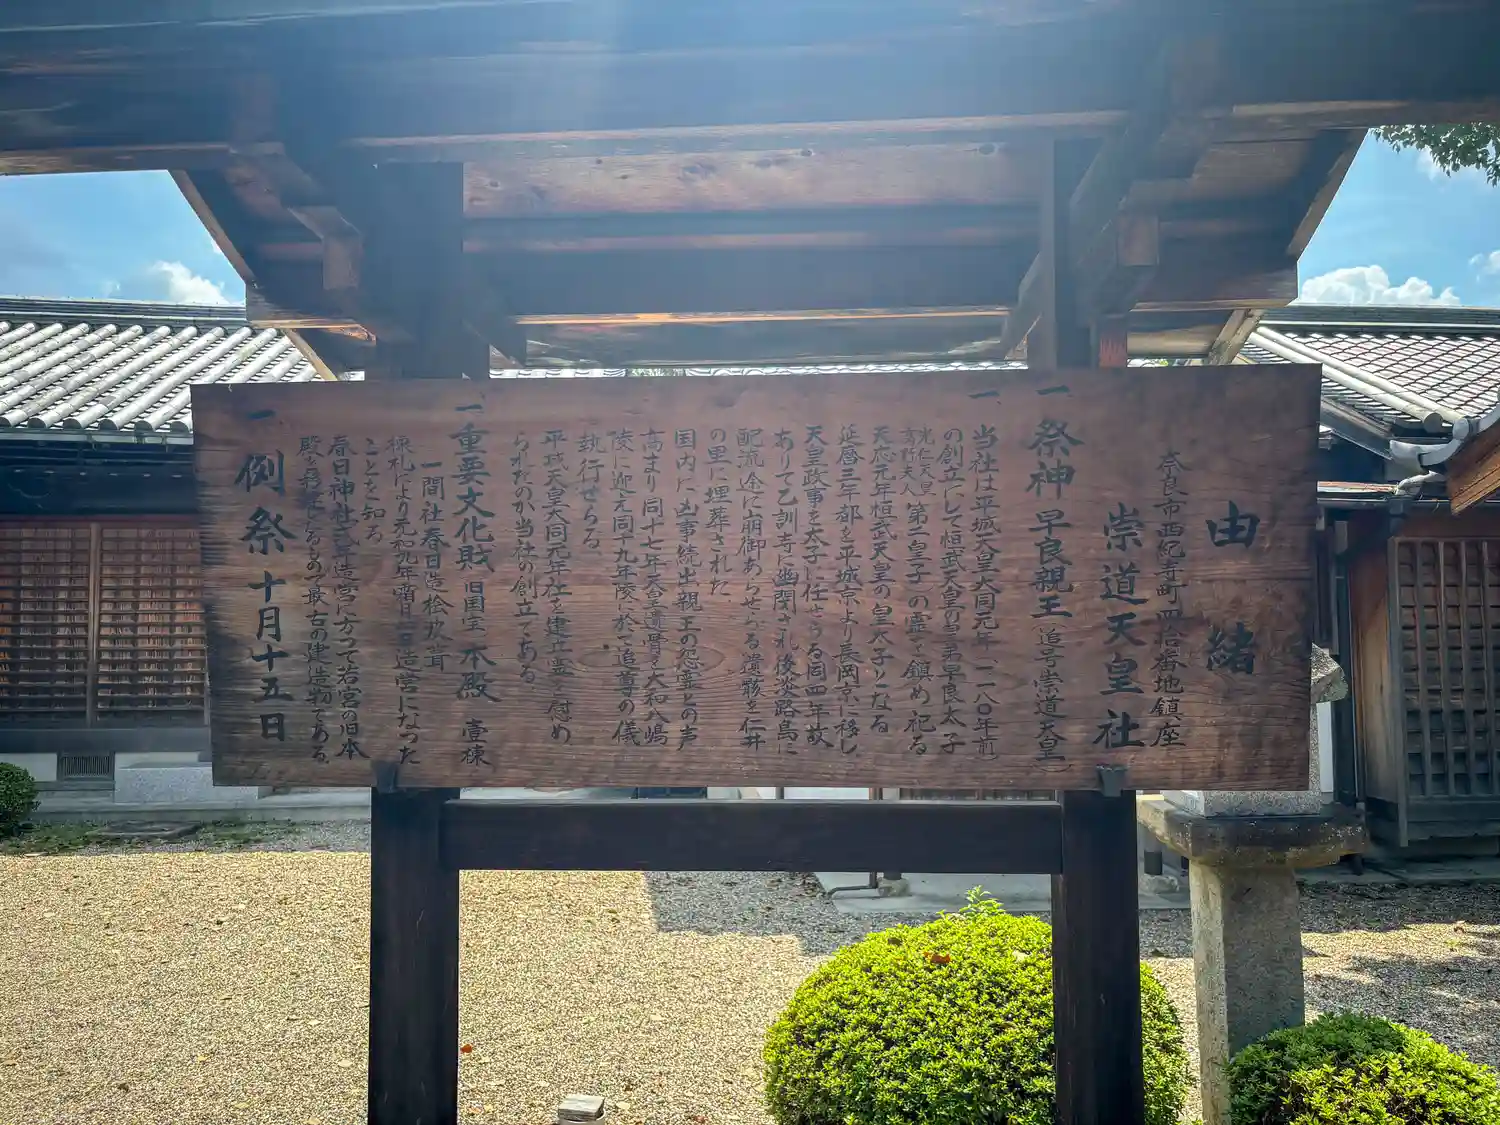 由緒
奈良市西紀寺町四拾番地鎮座
崇道天皇社
一、祭神 早良親王(追号崇道天皇)
一、当社は平城天皇大同元年(一一八〇年前)
の創立にして恒武天皇の皇弟早良太子
(光仁天皇 高野夫人 第二皇子)の霊を鎮め祀る
天応元年恒武天皇の皇太子となる
延暦三年都を平城京より長岡京に移し
天皇政事を太子に任せらる同四年故
ありて乙訓寺に幽閉され後淡路島に
配流途に崩御あらせらる遺骸を仁井
の里に埋葬された
国内に凶事続出親王の怨霊との声
高まり同十七年天皇遺骨を大和八嶋
陵に迎え同十九年陵に於て追尊の儀
執行せらる
平城天皇大同元年社を建立霊を慰め
られたのが当社の創立である
一、重要文化財 旧国宝 本殿 壹棟
一間社春日造桧皮葺
棟札により元和九年酉十一月造営になった
ことを知る
春日神社式年造宮に方って若宮の旧本
殿を移築したもので最古の建造物である
一、例祭 十月十五日